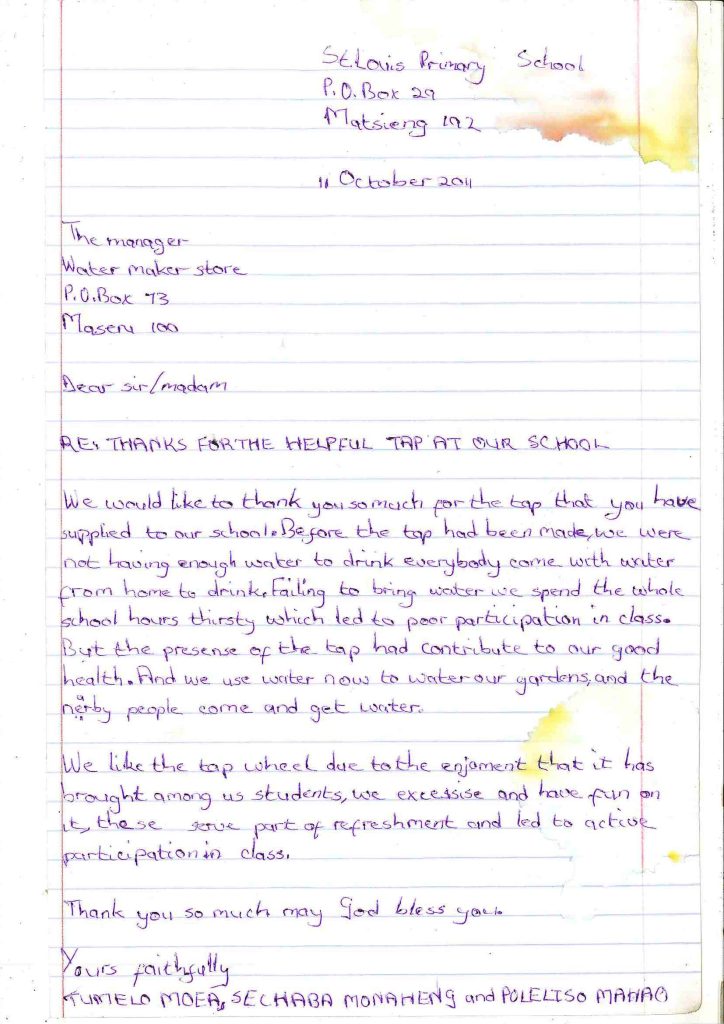 St. Louis Primary School
P.O. Box 29
Matsieng 192
11 October 2011
The manager
Water maker store
P.O. Box 73
Maseru 100
Dear sir/madam
RE: THANKS FOR THE HELPFUL TAP AT OUR SCHOOL
We would like to thank you so much for the tap that you have
supplied to our school. Before the tap had been made, we were
not having enough water to drink everybody come with water
from home to drink. Failing to bring water we spend the whole
school hours thirsty which led to poor participation in class.
But the presense of the tap had contribute to our good
health. And we use water now to water our gardens, and the
nearby people come and get water.
We like the tap wheel due to the enjament that it has
brought among us students, we excessise and have fun on
it, these serve part of refreshment and led to active
participation in class.
Thank you so much may God bless you.
Yours faithfully
TUMELO MOEA, SECHABA MONAHENG and POLELISO MAHAO